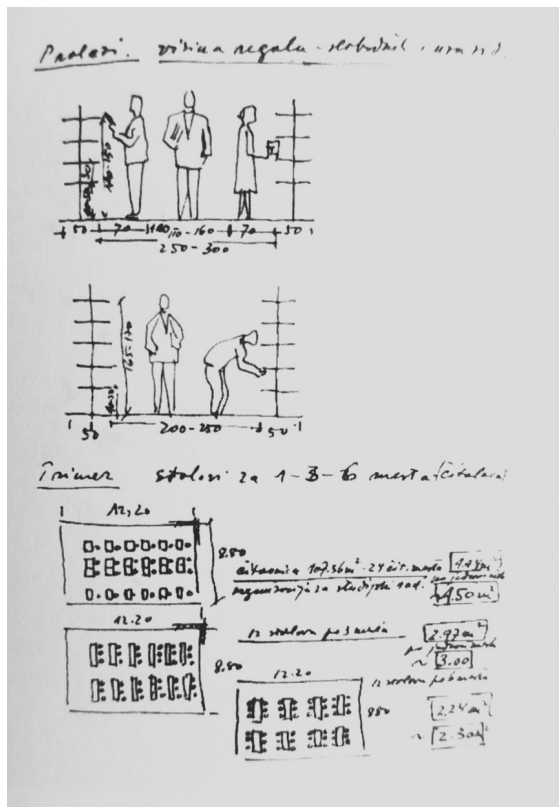 Prolazi. visina regala - slobodnih i
140-150
50 70 110-160 70 50
250-300
165-170
50 200-250 50
Primer stolovi za 1-3-6 mesta (čitalaca)
12,20
8.80
čitaonica 107.36m² - 24 čit. mesta 4.48m²
organizacija za studijski rad. ~4.50m²
12.20
8.80
12 stolova po 3 mesta 2.97m²
po jednom mestu
~ 3.00
12.20
880
12 stolova po 6 mesta
2.24m²
~ 2.30m²